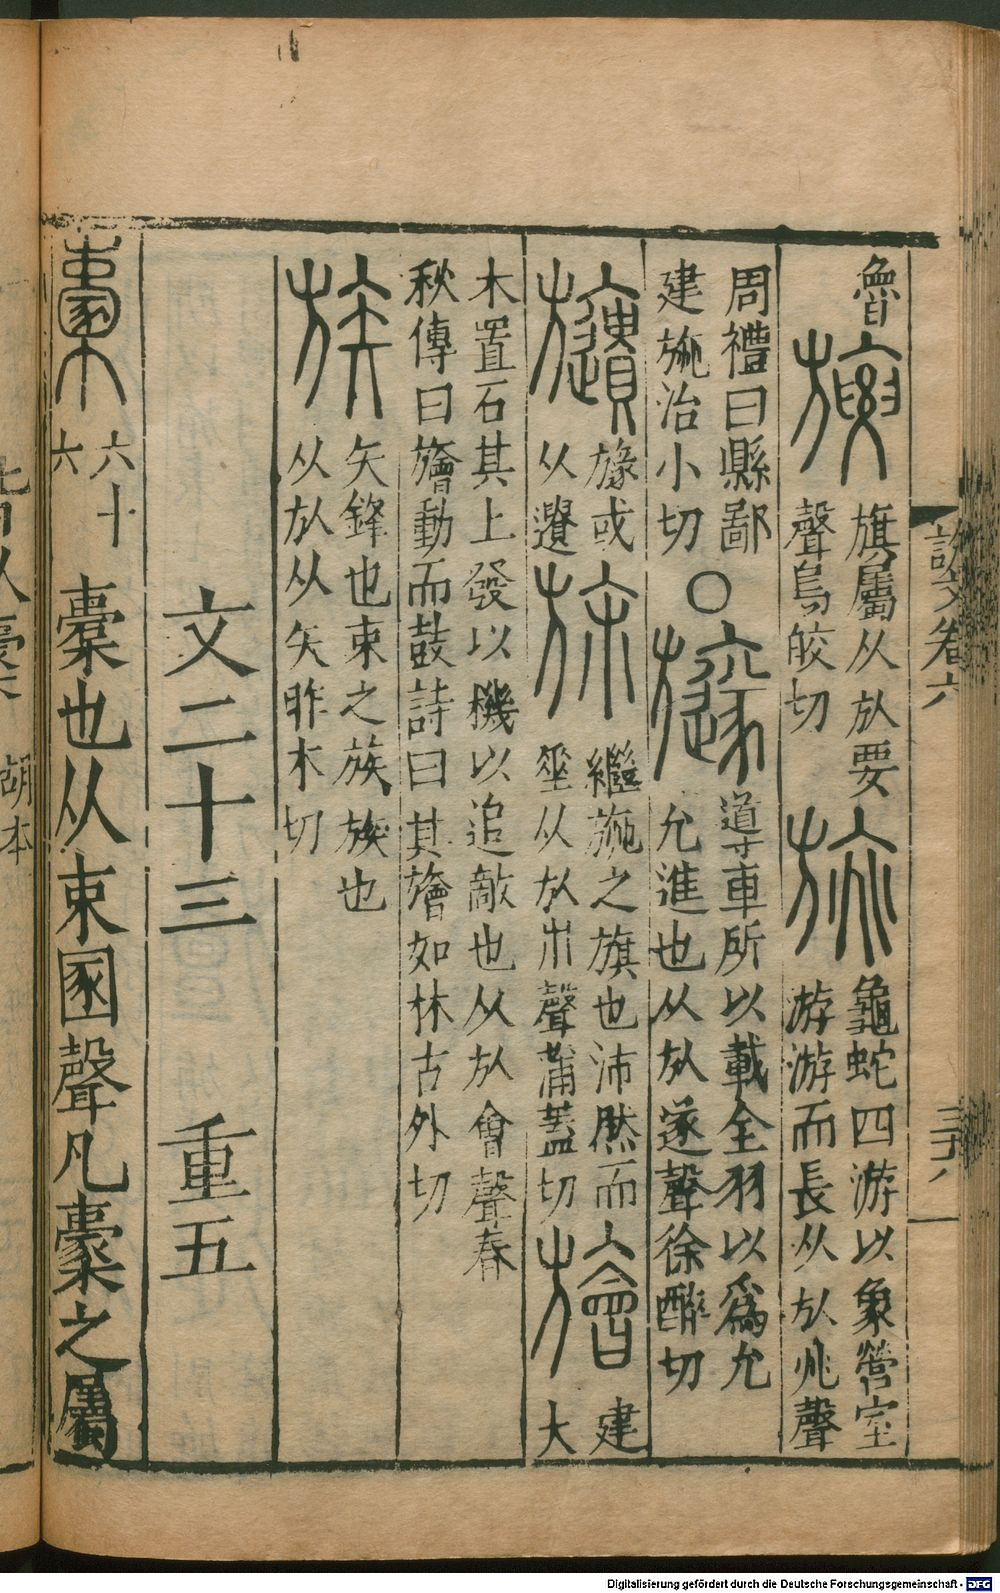 魯
旗屬从㫃要
聲烏皎切
龜蛇四游以象營室
游游而長从㫃兆聲
周禮曰縣鄙
建旐治小切
○
導車所以載全羽以爲允
允進也从㫃遂聲徐醉切
旞或
从遺
繼旐之旗也沛然而
垂从㫃巿聲蒲蓋切
建大
木置石其上發以機以追敵也从㫃會聲春
秋傳曰旝動而鼓詩曰其旝如林古外切
矢鋒也束之族族也
从㫃从矢昨木切
文二十三 重五
六十六
橐也从束圂聲凡㯻之屬
說文卷六
胡本
Digitalisierung gefördert durch die Deutsche Forschungsgemeinschaft - DFG